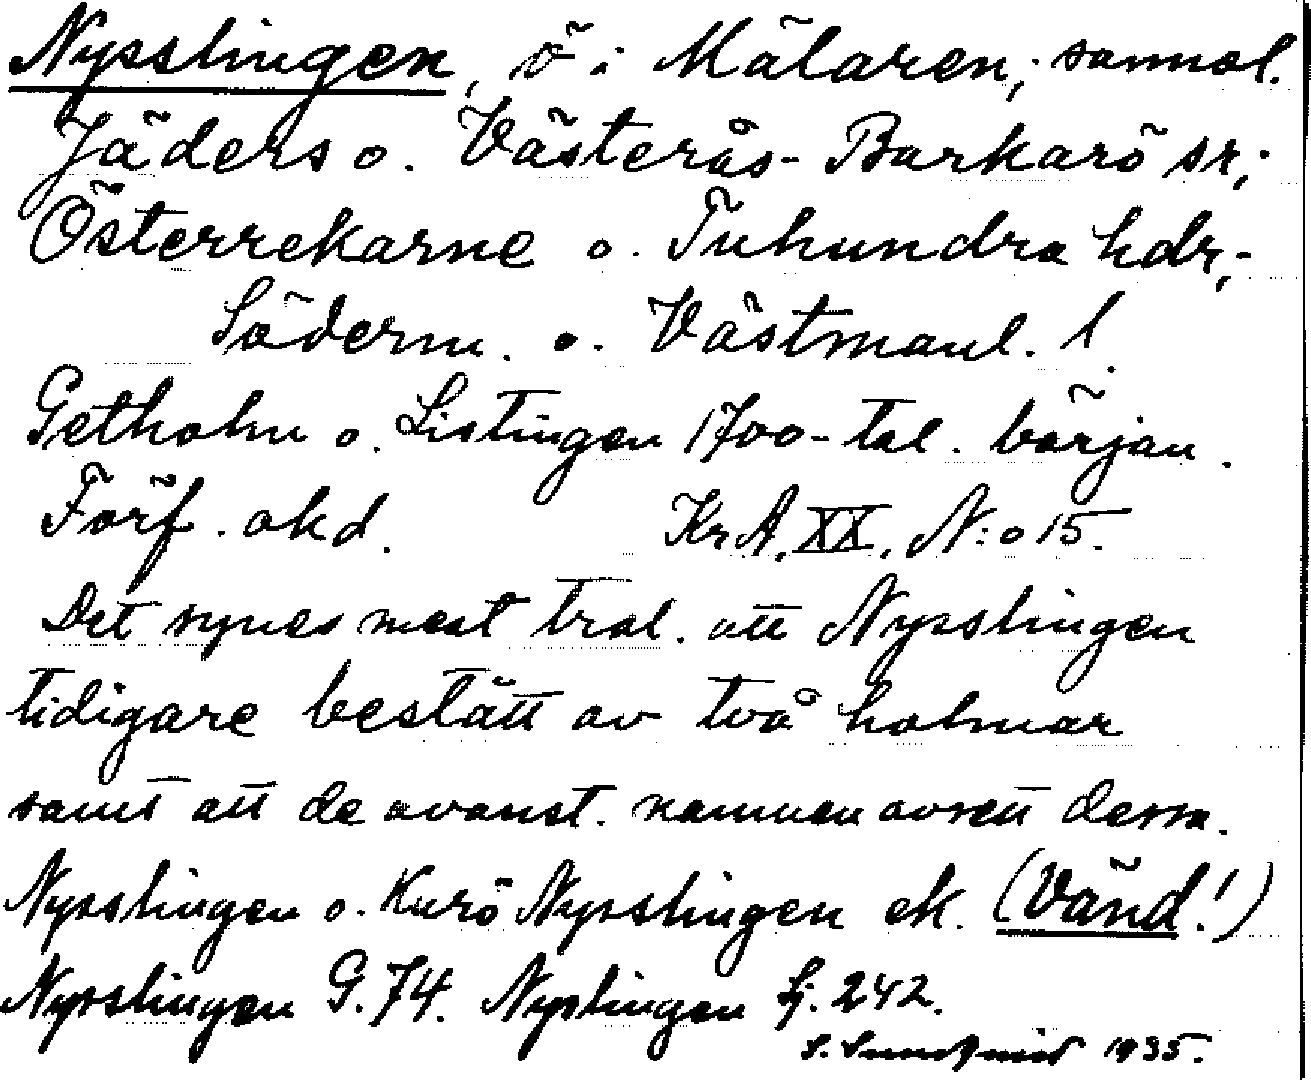 Nysslingen, ö i Mälaren, sannol.
Jäders o. Västerås-Barkarö sr,
Österrekarne o. Tuhundra hdr,
Söderm. o. Västmanl. l.
Getholm o. Listingen 1700-tal. början.
Förf. okd. KrA, XX, N:o 15.
Det synes mest trol. att Nysslingen
tidigare bestått av två holmar
samt att de ovanst. namnen avsett dessa.
Nysslingen o. Kurö Nysslingen ek. (Vänd!)
Nysslingen G. 74. Nyslingen Lj. 242.
S. Sundqvist 1935.